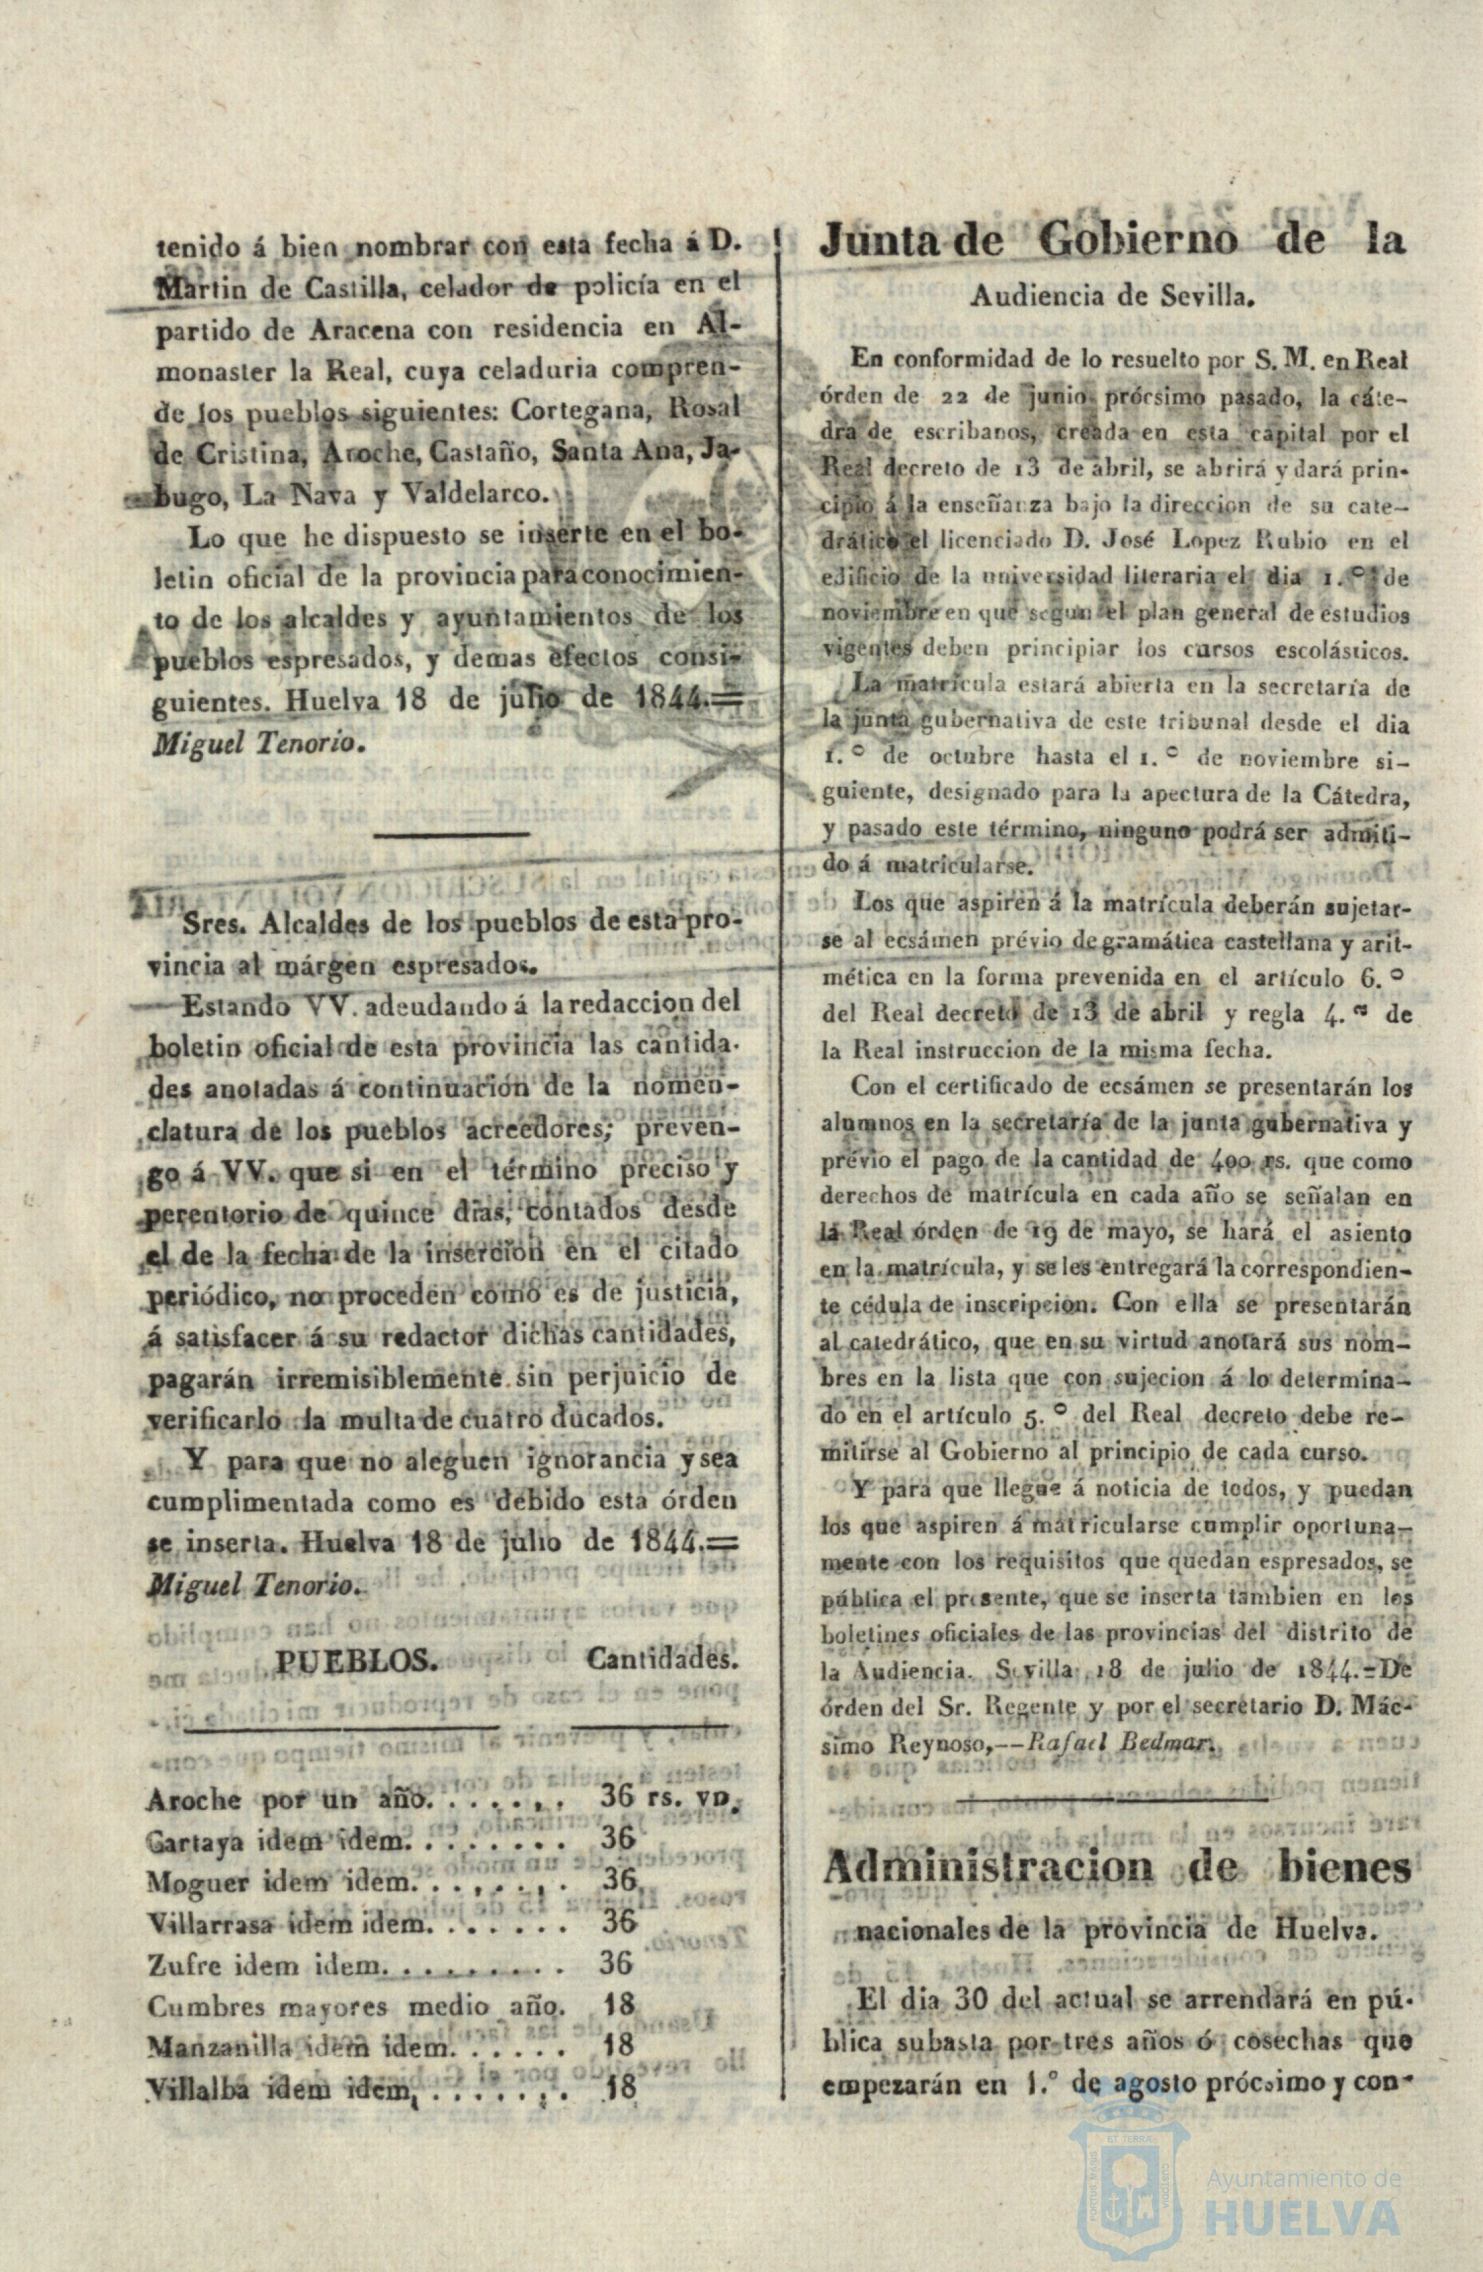 tenido á bien nombrar con esta fecha á D.
Martin de Castilla, celador de policía en el
partido de Aracena con residencia en Al-
monaster la Real, cuya celaduria compren-
de los pueblos siguientes: Cortegana, Rosal
de Cristina, Aroche, Castaño, Santa Ana, Ja-
bugo, La Nava y Valdelarco.
Lo que he dispuesto se inserte en el bo-
letin oficial de la provincia para conocimien-
to de los alcaldes y ayuntamientos de los
pueblos espresados, y demas efectos consi-
guientes. Huelva 18 de julio de 1844.=
Miguel Tenorio.
Sres. Alcaldes de los pueblos de esta pro-
vincia al márgen espresados.
Estando VV. adeudando á la redaccion del
boletin oficial de esta provincia las cantida-
des anotadas á continuacion de la nomen-
clatura de los pueblos acreedores; preven-
go á VV. que si en el término preciso y
perentorio de quince dias, contados desde
el de la fecha de la insercion en el citado
periódico, no proceden como es de justicia,
á satisfacer á su redactor dichas cantidades,
pagarán irremisiblemente sin perjuicio de
verificarlo la multa de cuatro ducados.
Y para que no aleguen ignorancia y sea
cumplimentada como es debido esta órden
se inserta. Huelva 18 de julio de 1844.=
Miguel Tenorio.
PUEBLOS. Cantidades.
Aroche por un año. . . . . . . 36 rs. vn.
Cartaya idem idem. . . . . . . . 36
Moguer idem idem. . . . . . . . 36
Villarrasa idem idem. . . . . . . 36
Zufre idem idem. . . . . . . . . 36
Cumbres mayores medio año. 18
Manzanilla idem idem. . . . . . 18
Villalba idem idem, . . . . . . . 18
Junta de Gobierno de la
Audiencia de Sevilla.
En conformidad de lo resuelto por S. M. en Real
órden de 22 de junio prócsimo pasado, la cáte-
dra de escribanos, creada en esta capital por el
Real decreto de 13 de abril, se abrirá y dará prin-
cipio á la enseñanza bajo la direccion de su cate-
drático el licenciado D. José Lopez Rubio en el
edificio de la universidad literaria el dia 1.º de
noviembre en que segun el plan general de estudios
vigentes deben principiar los cursos escolásticos.
La matrícula estará abierta en la secretaría de
la junta gubernativa de este tribunal desde el dia
1.º de octubre hasta el 1.º de noviembre si-
guiente, designado para la apectura de la Cátedra,
y pasado este término, ninguno podrá ser admiti-
do á matricularse.
Los que aspiren á la matrícula deberán sujetar-
se al ecsámen prévio de gramática castellana y arit-
mética en la forma prevenida en el artículo 6.º
del Real decreto de 13 de abril y regla 4.ª de
la Real instruccion de la misma fecha.
Con el certificado de ecsámen se presentarán los
alumnos en la secretaría de la junta gubernativa y
prévio el pago de la cantidad de 400 rs. que como
derechos de matrícula en cada año se señalan en
la Real órden de 19 de mayo, se hará el asiento
en la matrícula, y se les entregará la correspondien-
te cédula de inscripcion. Con ella se presentarán
al catedrático, que en su virtud anotará sus nom-
bres en la lista que con sujecion á lo determina-
do en el artículo 5.º del Real decreto debe re-
mitirse al Gobierno al principio de cada curso.
Y para que llegue á noticia de todos, y puedan
los que aspiren á matricularse cumplir oportuna-
mente con los requisitos que quedan espresados, se
publica el presente, que se inserta tambien en los
boletines oficiales de las provincias del distrito de
la Audiencia. Sevilla 18 de julio de 1844.=De
órden del Sr. Regente y por el secretario D. Mác-
simo Reynoso,--Rafael Bedmar.
Administracion de bienes
nacionales de la provincia de Huelva.
El dia 30 del actual se arrendará en pú-
blica subasta por tres años ó cosechas que
empezarán en 1.º de agosto prócsimo y con-
Ayuntamiento de
HUELVA